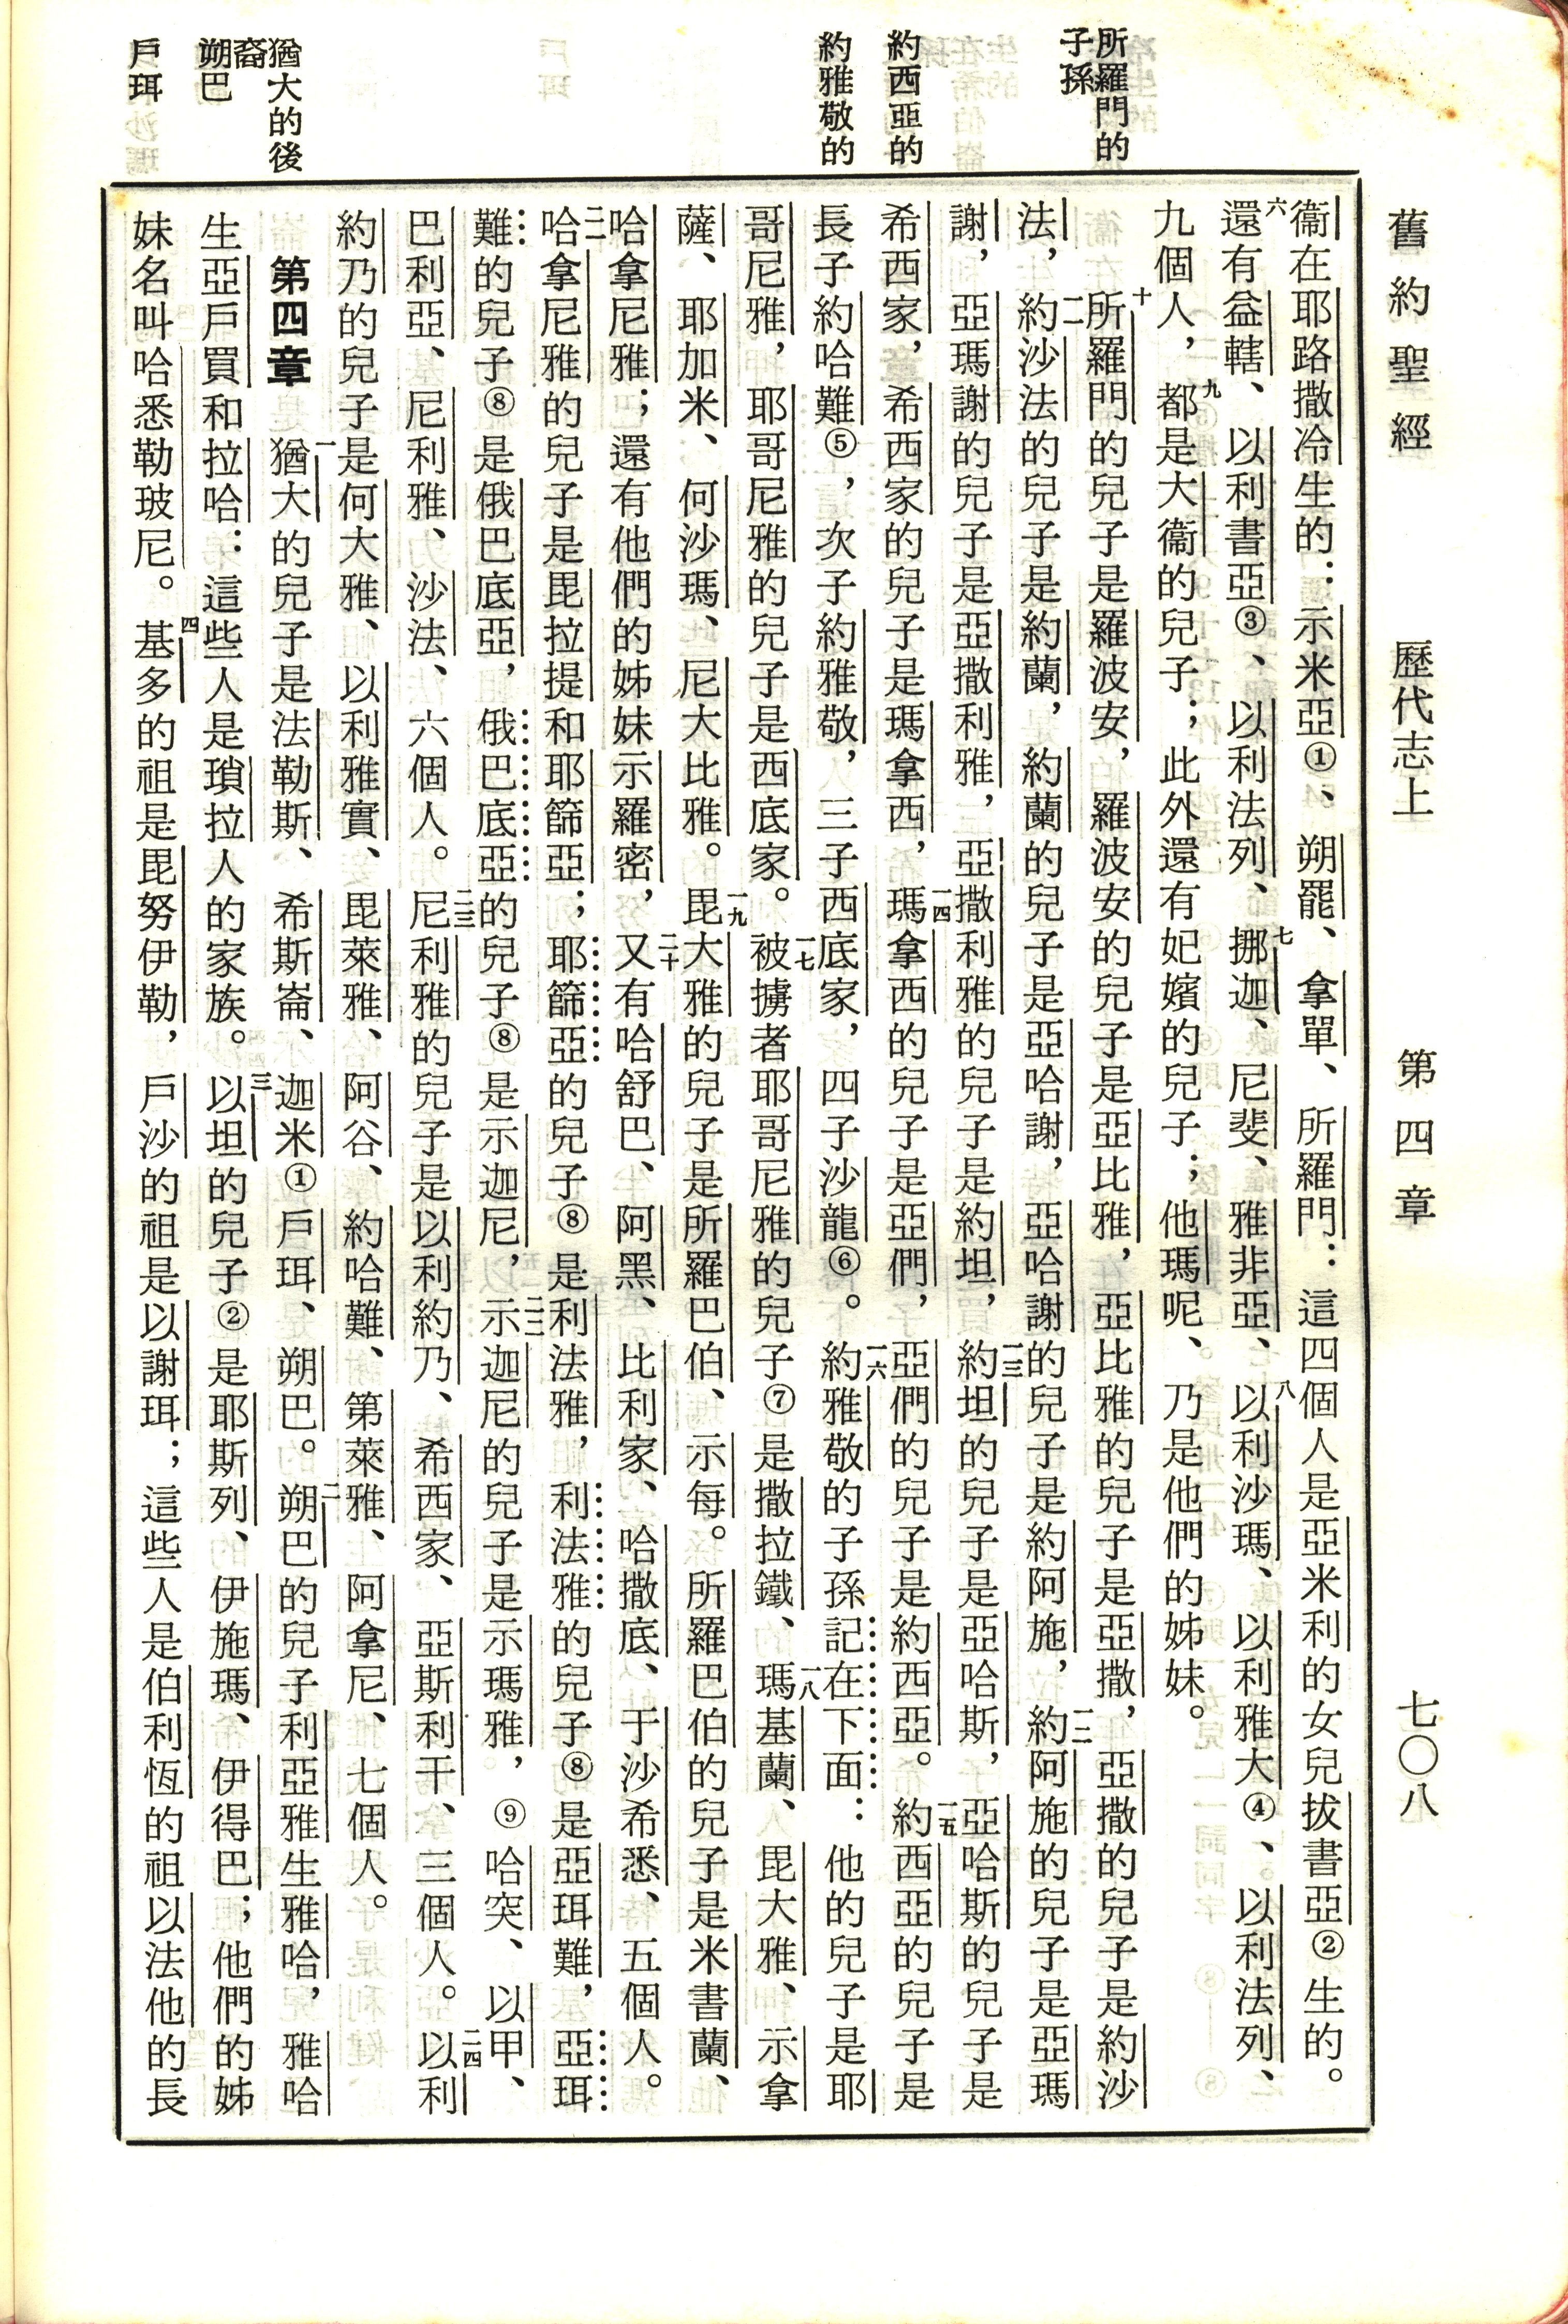 舊約聖經　歷代志上　第四章　七〇八
所羅門的
子孫
約西亞的
約雅敬的
猶大的後
裔
朔巴
戶珥
衞在耶路撒冷生的：示米亞①、朔罷、拿單、所羅門：這四個人是亞米利的女兒拔書亞②生的。
六還有益轄、以利書亞③、以利法列、七挪迦、尼斐、雅非亞、八以利沙瑪、以利雅大④、以利法列、
九個人，九都是大衞的兒子；此外還有妃嬪的兒子；他瑪呢、乃是他們的姊妹。
十所羅門的兒子是羅波安，羅波安的兒子是亞比雅，亞比雅的兒子是亞撒，亞撒的兒子是約沙
法，一一約沙法的兒子是約蘭，約蘭的兒子是亞哈謝，亞哈謝的兒子是約阿施，一二約阿施的兒子是亞瑪
謝，亞瑪謝的兒子是亞撒利雅，亞撒利雅的兒子是約坦，一三約坦的兒子是亞哈斯，亞哈斯的兒子是
希西家，希西家的兒子是瑪拿西，一四瑪拿西的兒子是亞們，亞們的兒子是約西亞。一五約西亞的兒子是
長子約哈難⑤，次子約雅敬，三子西底家，四子沙龍⑥。一六約雅敬的子孫記在下面：他的兒子是耶
哥尼雅，耶哥尼雅的兒子是西底家。一七被擄者耶哥尼雅的兒子⑦是撒拉鐵、一八瑪基蘭、毘大雅、示拿
薩、耶加米、何沙瑪、尼大比雅。一九毘大雅的兒子是所羅巴伯、示每。所羅巴伯的兒子是米書蘭、
哈拿尼雅；還有他們的姊妹示羅密，二十又有哈舒巴、阿黑、比利家、哈撒底、于沙希悉、五個人。
二一哈拿尼雅的兒子是毘拉提和耶篩亞；耶篩亞的兒子⑧是利法雅，利法雅的兒子⑧是亞珥難，亞珥
難的兒子⑧是俄巴底亞，俄巴底亞的兒子⑧是示迦尼，二二示迦尼的兒子是示瑪雅，⑨哈突、以甲、
巴利亞、尼利雅、沙法、六個人。二三尼利雅的兒子是以利約乃、希西家、亞斯利干、三個人。二四以利
約乃的兒子是何大雅、以利雅實、毘萊雅、阿谷、約哈難、第萊雅、阿拿尼、七個人。
第四章　一猶大的兒子是法勒斯、希斯崙、迦米①戶珥、朔巴。二朔巴的兒子利亞雅生雅哈，雅哈
生亞戶買和拉哈：這些人是瑣拉人的家族。三以坦的兒子②是耶斯列、伊施瑪、伊得巴；他們的姊
妹名叫哈悉勒玻尼。四基多的祖是毘努伊勒，戶沙的祖是以謝珥；這些人是伯利恆的祖以法他的長